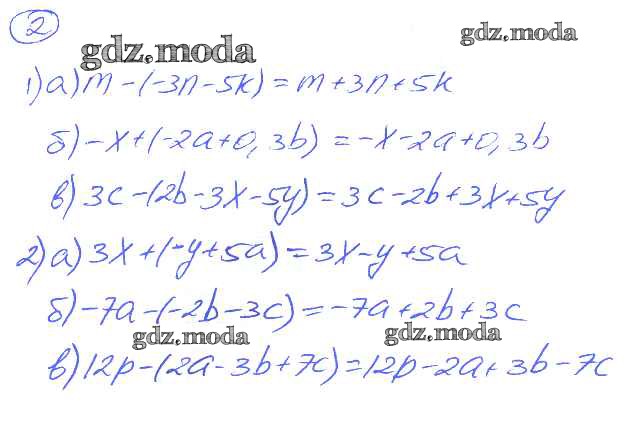 2
gdz.moda
gdz.moda
1) а) m - (-3n - 5k) = m + 3n + 5k
б) -x + (-2a + 0,3b) = -x - 2a + 0,3b
в) 3c - (2b - 3x - 5y) = 3c - 2b + 3x + 5y
2) а) 3x + (-y + 5a) = 3x - y + 5a
б) -7a - (-2b - 3c) = -7a + 2b + 3c
gdz.moda
gdz.moda
в) 12p - (2a - 3b + 7c) = 12p - 2a + 3b - 7c